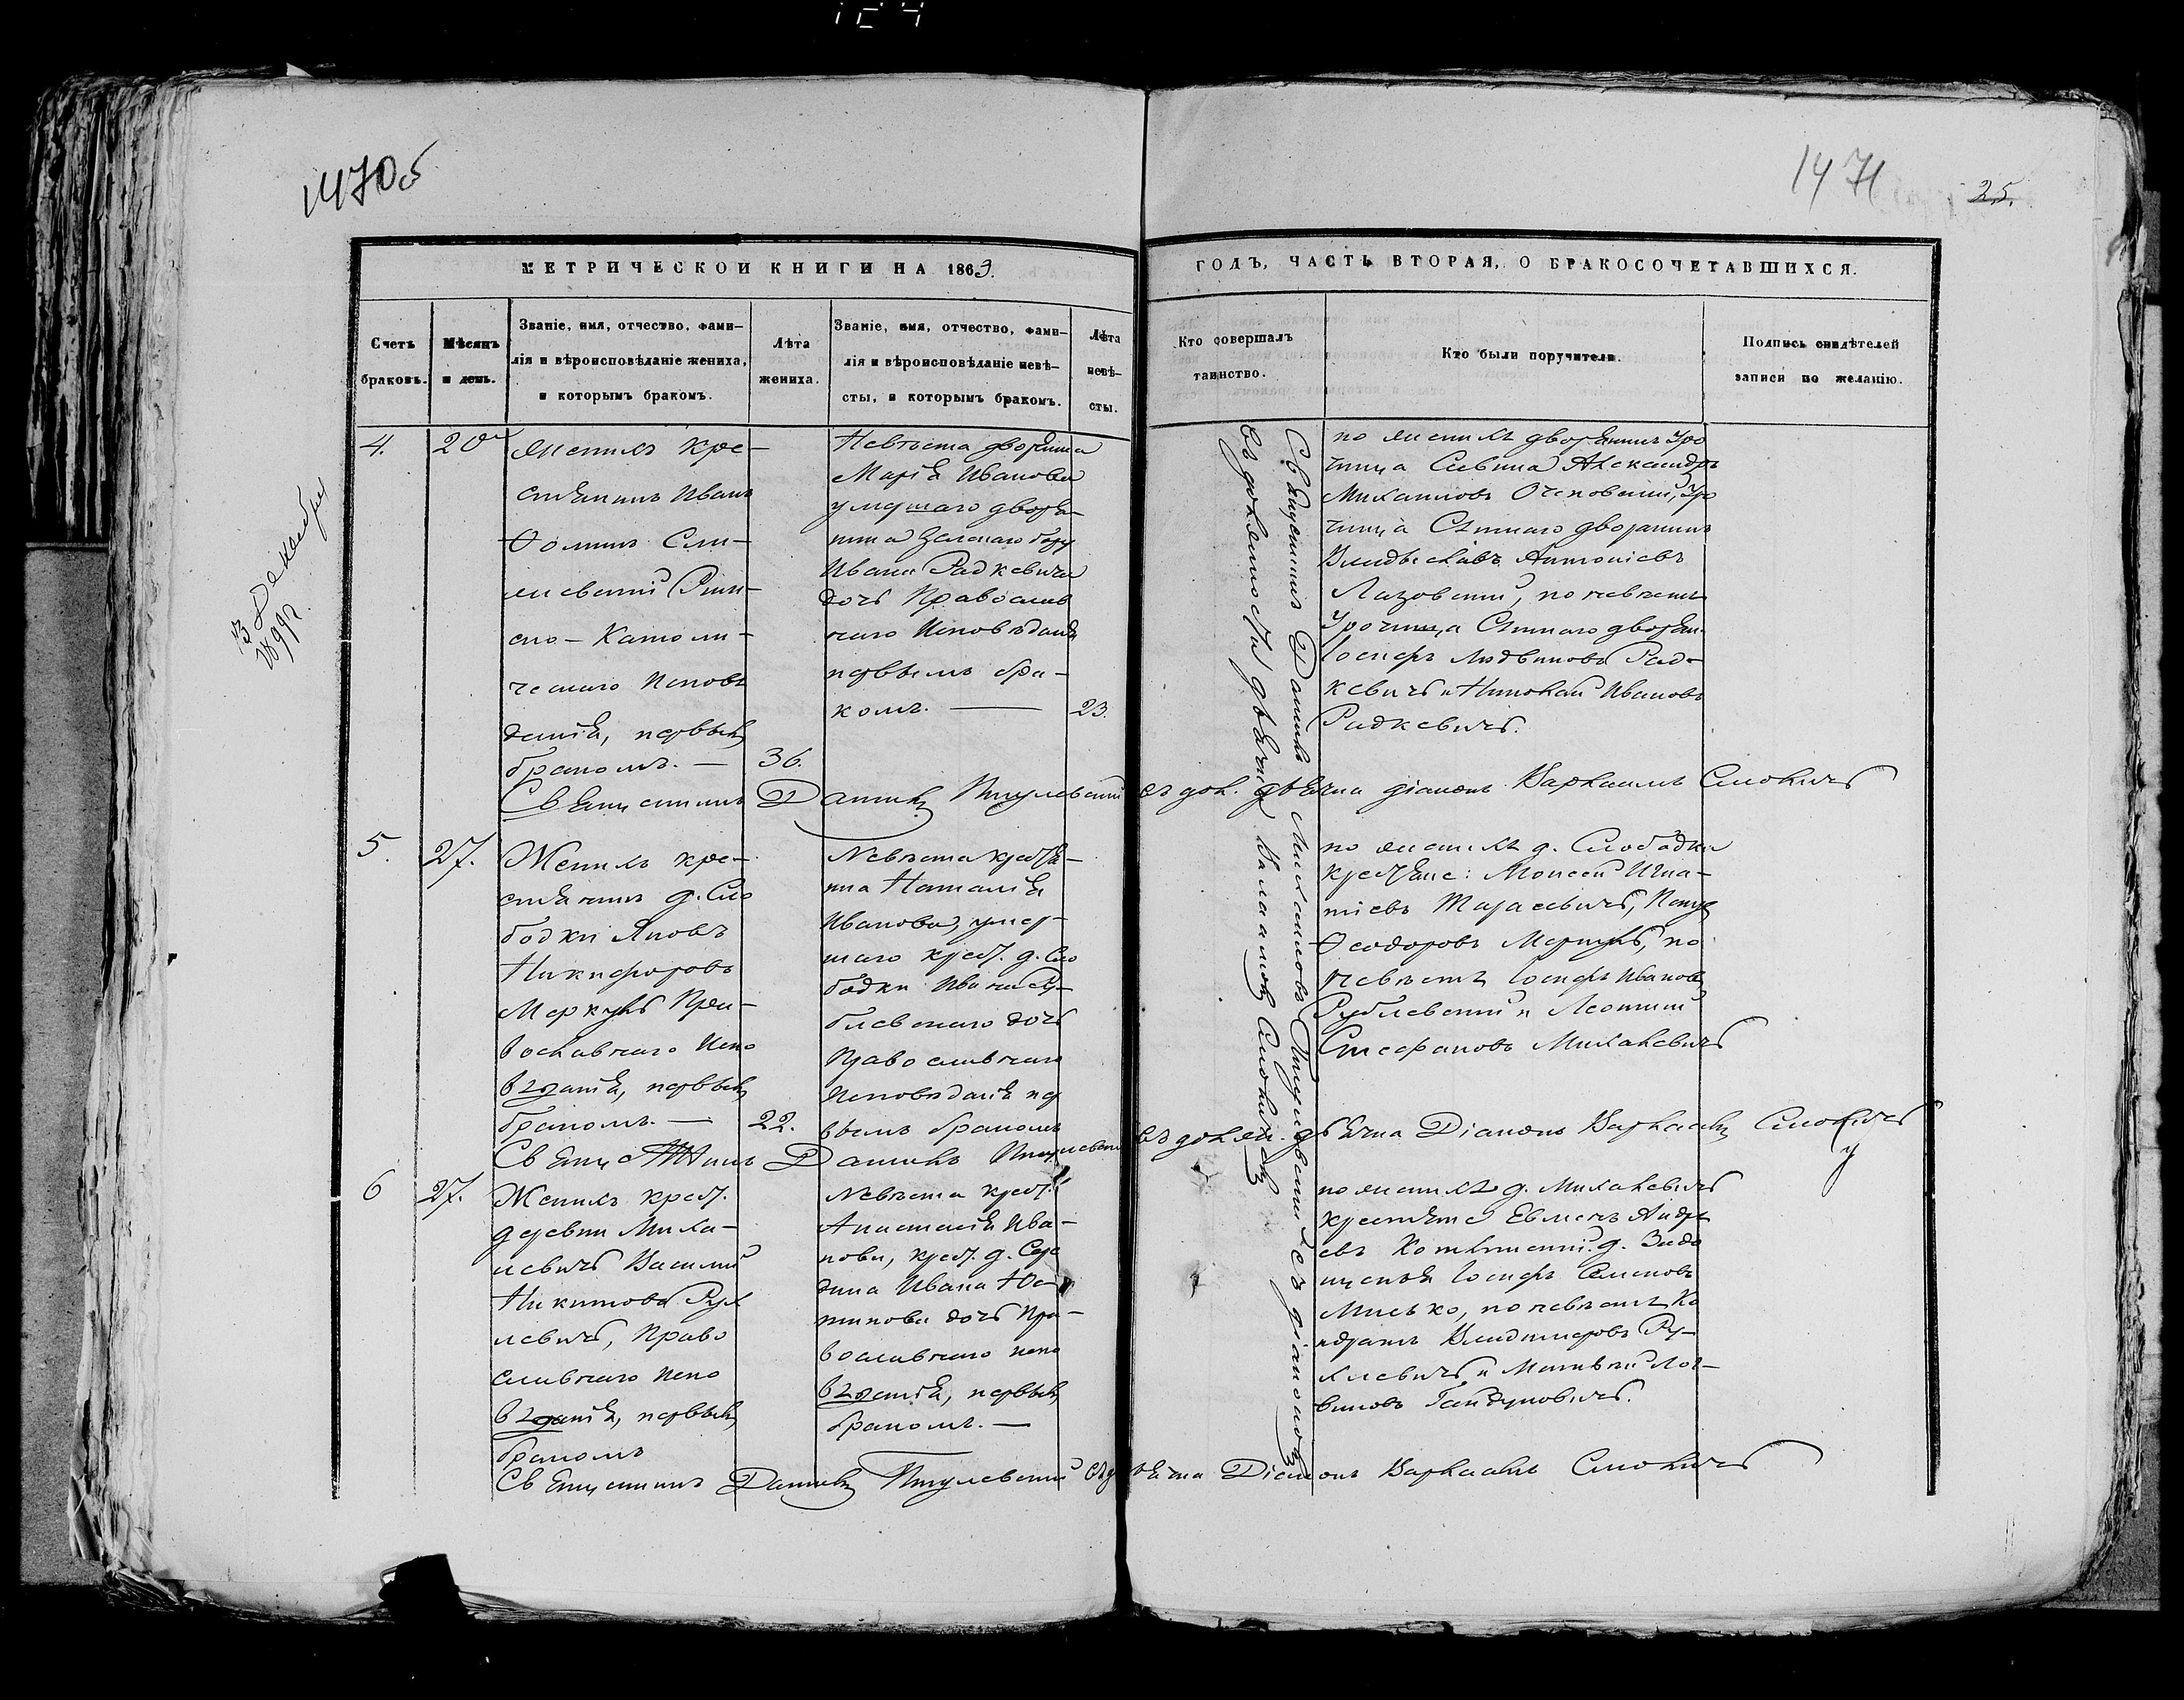 1470б
1471
25.
3 Декабря
1899г.
МЕТРИЧЕСКОЙ КНИГИ НА 1863.
ГОДЪ, ЧАСТЬ ВТОРАЯ, О БРАКОСОЧЕТАВШИХСЯ.
Счетъ
браковъ.
Мѣсяцъ
и день.
Званіе, имя, отчество, фами-
лія и вѣроисповѣданіе жениха,
и которымъ бракомъ.
Лѣта
жениха.
Званіе, имя, отчество, фами-
лія и вѣроисповѣданіе невѣ-
сты, и которымъ бракомъ.
Лѣта
невѣ-
сты.
Кто совершалъ
таинство.
Кто были поручители.
Подпись свидѣтелей
записи по желанію.
4.
20
Женихъ кре-
стьянинъ Иванъ
Ѳоминъ
Рим-
ско-Католи-
ческаго исповѣ
данія, первымъ
бракомъ. —
36.
Невѣста дворянка
Марія Иванова
умершаго дворя-
нина
Ивана Радкевича
дочь Православ
наго Исповѣданія
первымъ бра-
комъ. —
23.
по женихѣ дворянинъ Уро
чища Александръ
Михаиловъ Уро
чища дворянинъ
Владиславъ Антоніевъ
по невѣстѣ
Урочища дворян.
Іосифъ Людвиковъ Рад-
кевичъ и Николай Ивановъ
Радкевичъ.
Священникъ Даніилъ Пигулевскій съ дол. дьячка діакономъ Варлаамъ Смоличъ
5.
27.
Женихъ кре-
стьянинъ д. Сло
бодки Яковъ
Никифоровъ
Меркуль Пра-
вославнаго Испо
вѣданія, первымъ
бракомъ. —
22.
Невѣста крестья-
нка Наталія
Иванова, умер-
шаго крест. д. Сло
бодки Ивана Ру-
блевскаго дочь
Православнаго
Исповѣданія пер
вымъ бракомъ
по женихѣ д. Слободки
крестьяне: Моисей Игна-
тіевъ Тарасевичъ,
Ѳеодоровъ Меркуль, по
невѣстѣ Іосифъ Ивановъ
Рублевскій и Леонтій
Стефановъ Михалевичъ
Священникъ Даніилъ Пигулевскій съ должн. дьячка Діаконъ Варлаамъ Смоличъ
6
27.
Женихъ крест.
деревни Миха-
левичъ Василій
Никитовъ Рух
левичъ, Право
славнаго Испо
вѣданія, первымъ
бракомъ
Невѣста крест.
Анастасія Ива-
нова, крест. д. Сере
дина Ивана
дочь Пра-
вославнаго испо
вѣданія, первымъ
бракомъ. —
по женихѣ д. Михалевичъ
крестьяне Андре
евъ д.
Іосифъ Семеновъ
Мисько, по невѣстѣ Ко
ндратъ Владиміровъ Ру-
хлевичъ и Матвѣй Лог-
виновъ Гайдуковичъ.
Священникъ Даніилъ Пигулевскій дьячка Діаконъ Варлаамъ Смоличъ
Священникъ Даніилъ Михаиловъ Пигулевскій съ діакономъ
въ должности дьячка Варлаамомъ Смоличемъ